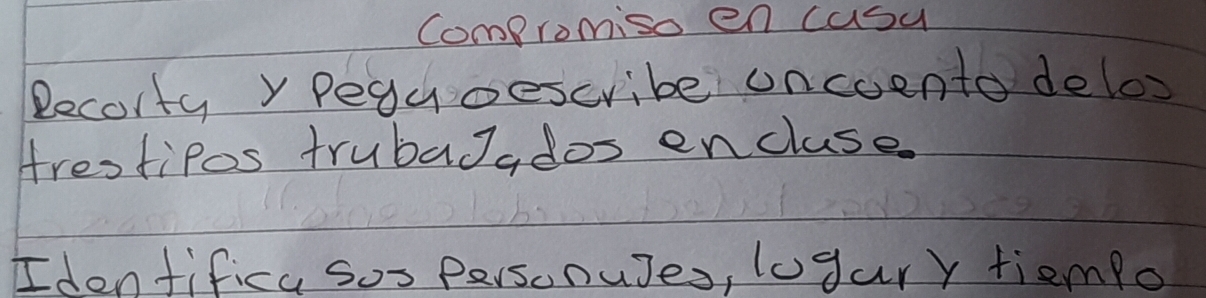 Compromiso en casa
Recorta y Pega o escribe un cuento de los
tres tipos trabaJados en clase.
Identifica sus PersonaJes, lugar y tiempo